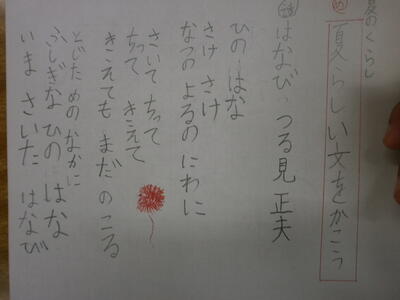 夏のくらし
夏らしい文をかこう
詩 はなび つる見 正夫
ひの はな
さけ さけ
なつの よるの にわに
さいて ちって
ちって きえて
きえても まだ のこる
とじた めの なかに
ふしぎな ひの はな
いま さいた はなび